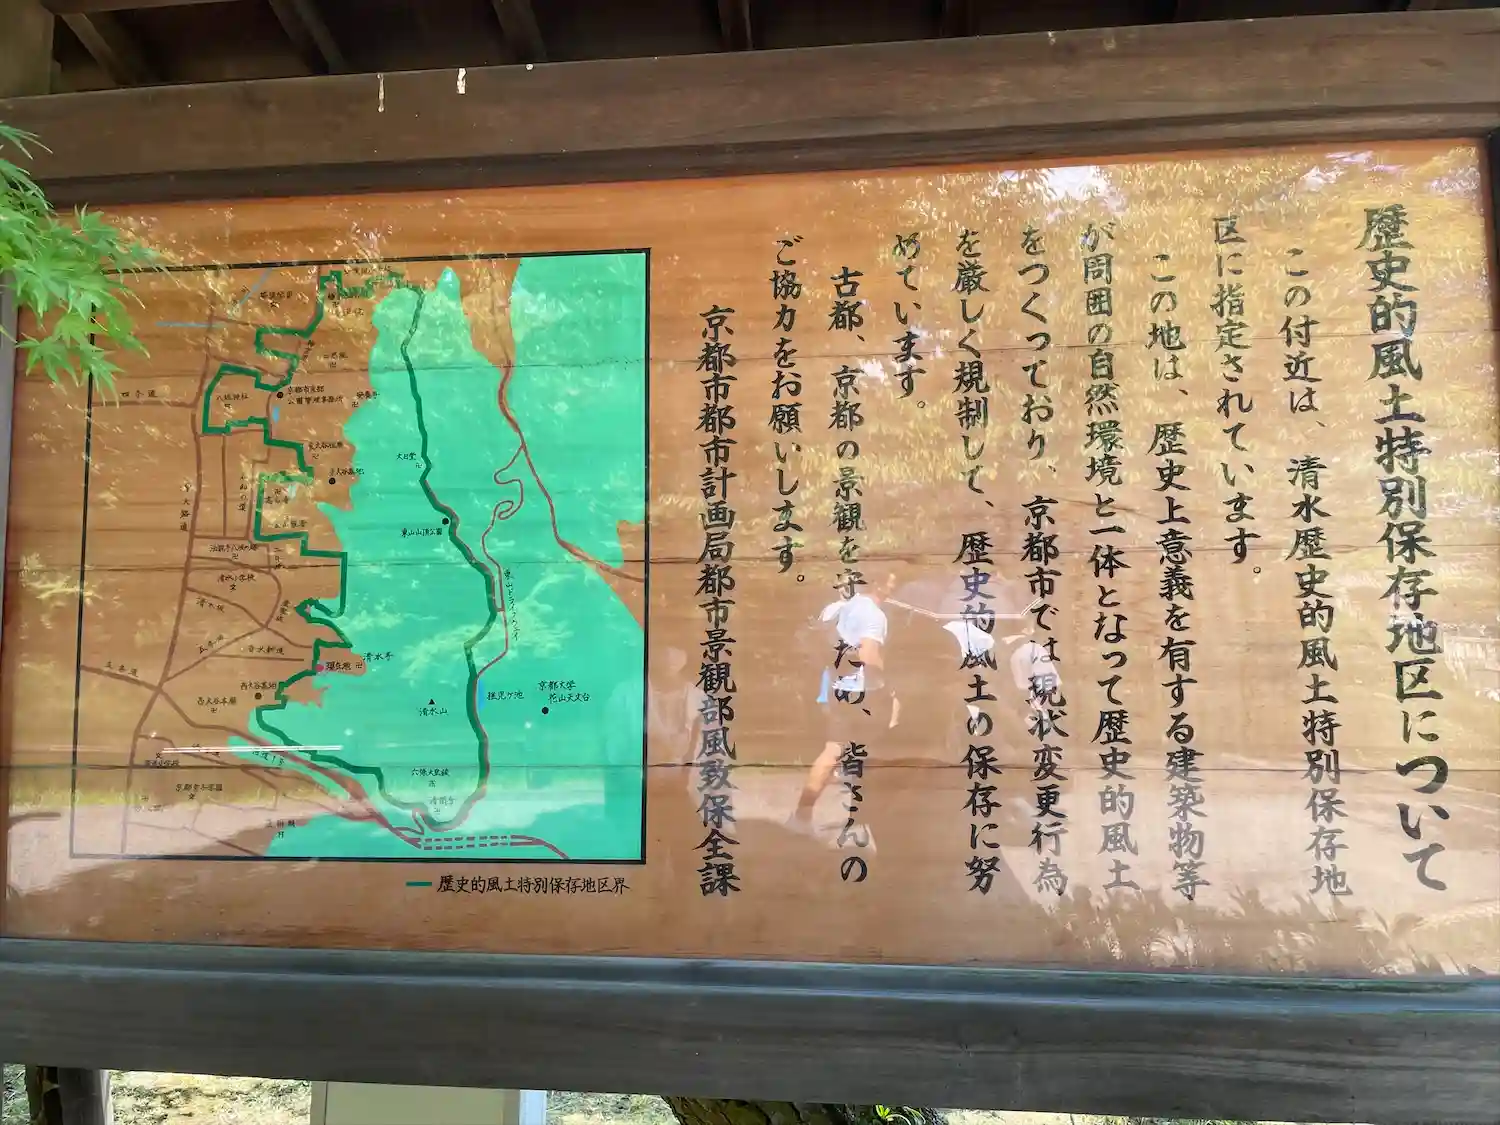 歴史的風土特別保存地区について
この付近は、清水歴史的風土特別保存地
区に指定されています。
この地は、歴史上意義を有する建築物等
が周囲の自然環境と一体となって歴史的風土
をつくっており、京都市では現状変更行為
を厳しく規制して、歴史的風土の保存に努
めています。
古都、京都の景観を守るため、皆さんの
ご協力をお願いします。
京都市都市計画局都市景観部風致保全課
四条通
八坂神社
京都市東部
公園管理事務所
安養寺
大日堂
東山山頂公園
東山ドライブウェイ
東大路通
清水小学校
清水坂
五条坂
五条通
清水寺
西大谷墓地
西大谷本廟
清水山
推児ケ池
京都大学
花山天文台
六條大島線
清閑寺
歴史的風土特別保存地区界